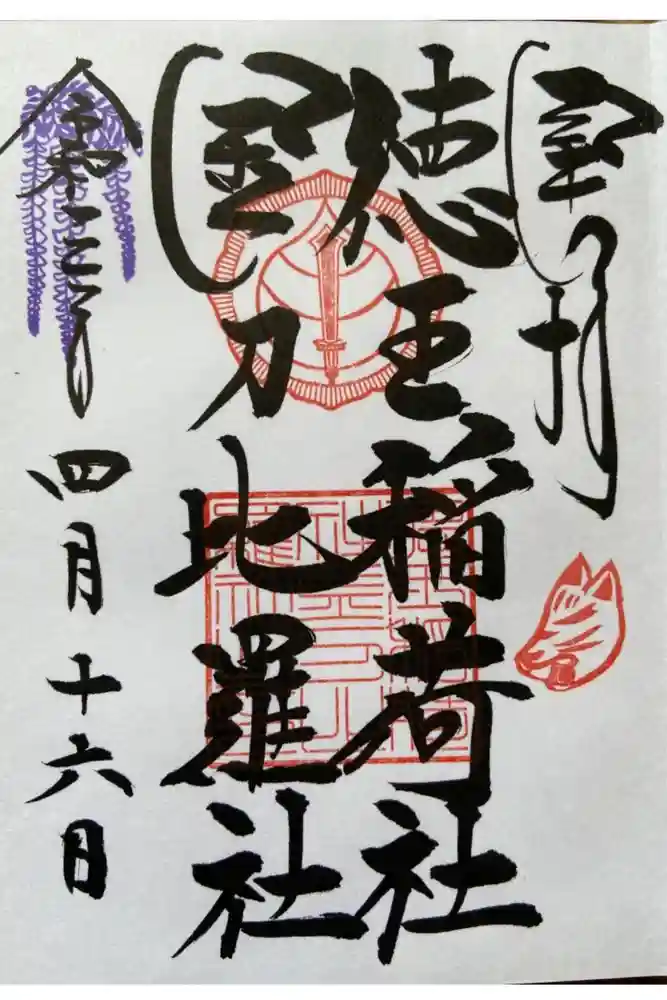 徳王稲荷社
金刀比羅社
令和三年四月十六日